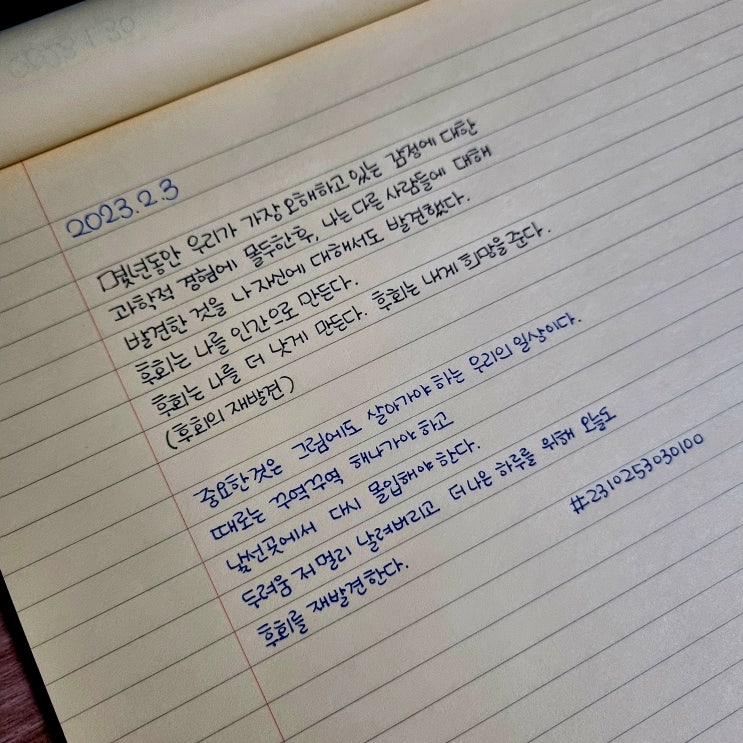 2023.2.3
□몇년동안 우리가 가장 오해하고 있는 감정에 대한
과학적 경험에 몰두한후, 나는 다른 사람들에 대해
발견한 것을 나 자신에 대해서도 발견했다.
후회는 나를 인간으로 만든다.
후회는 나를 더 낫게 만든다. 후회는 내게 희망을 준다.
(후회의 재발견)
중요한것은 그럼에도 살아가야 하는 우리의 일상이다.
때로는 꾸역꾸역 해나가야 하고
낯선곳에서 다시 몰입해야 한다.
두려움 저 멀리 날려버리고 더 나은 하루를 위해 오늘도
후회를 재발견한다.
#2310253030100